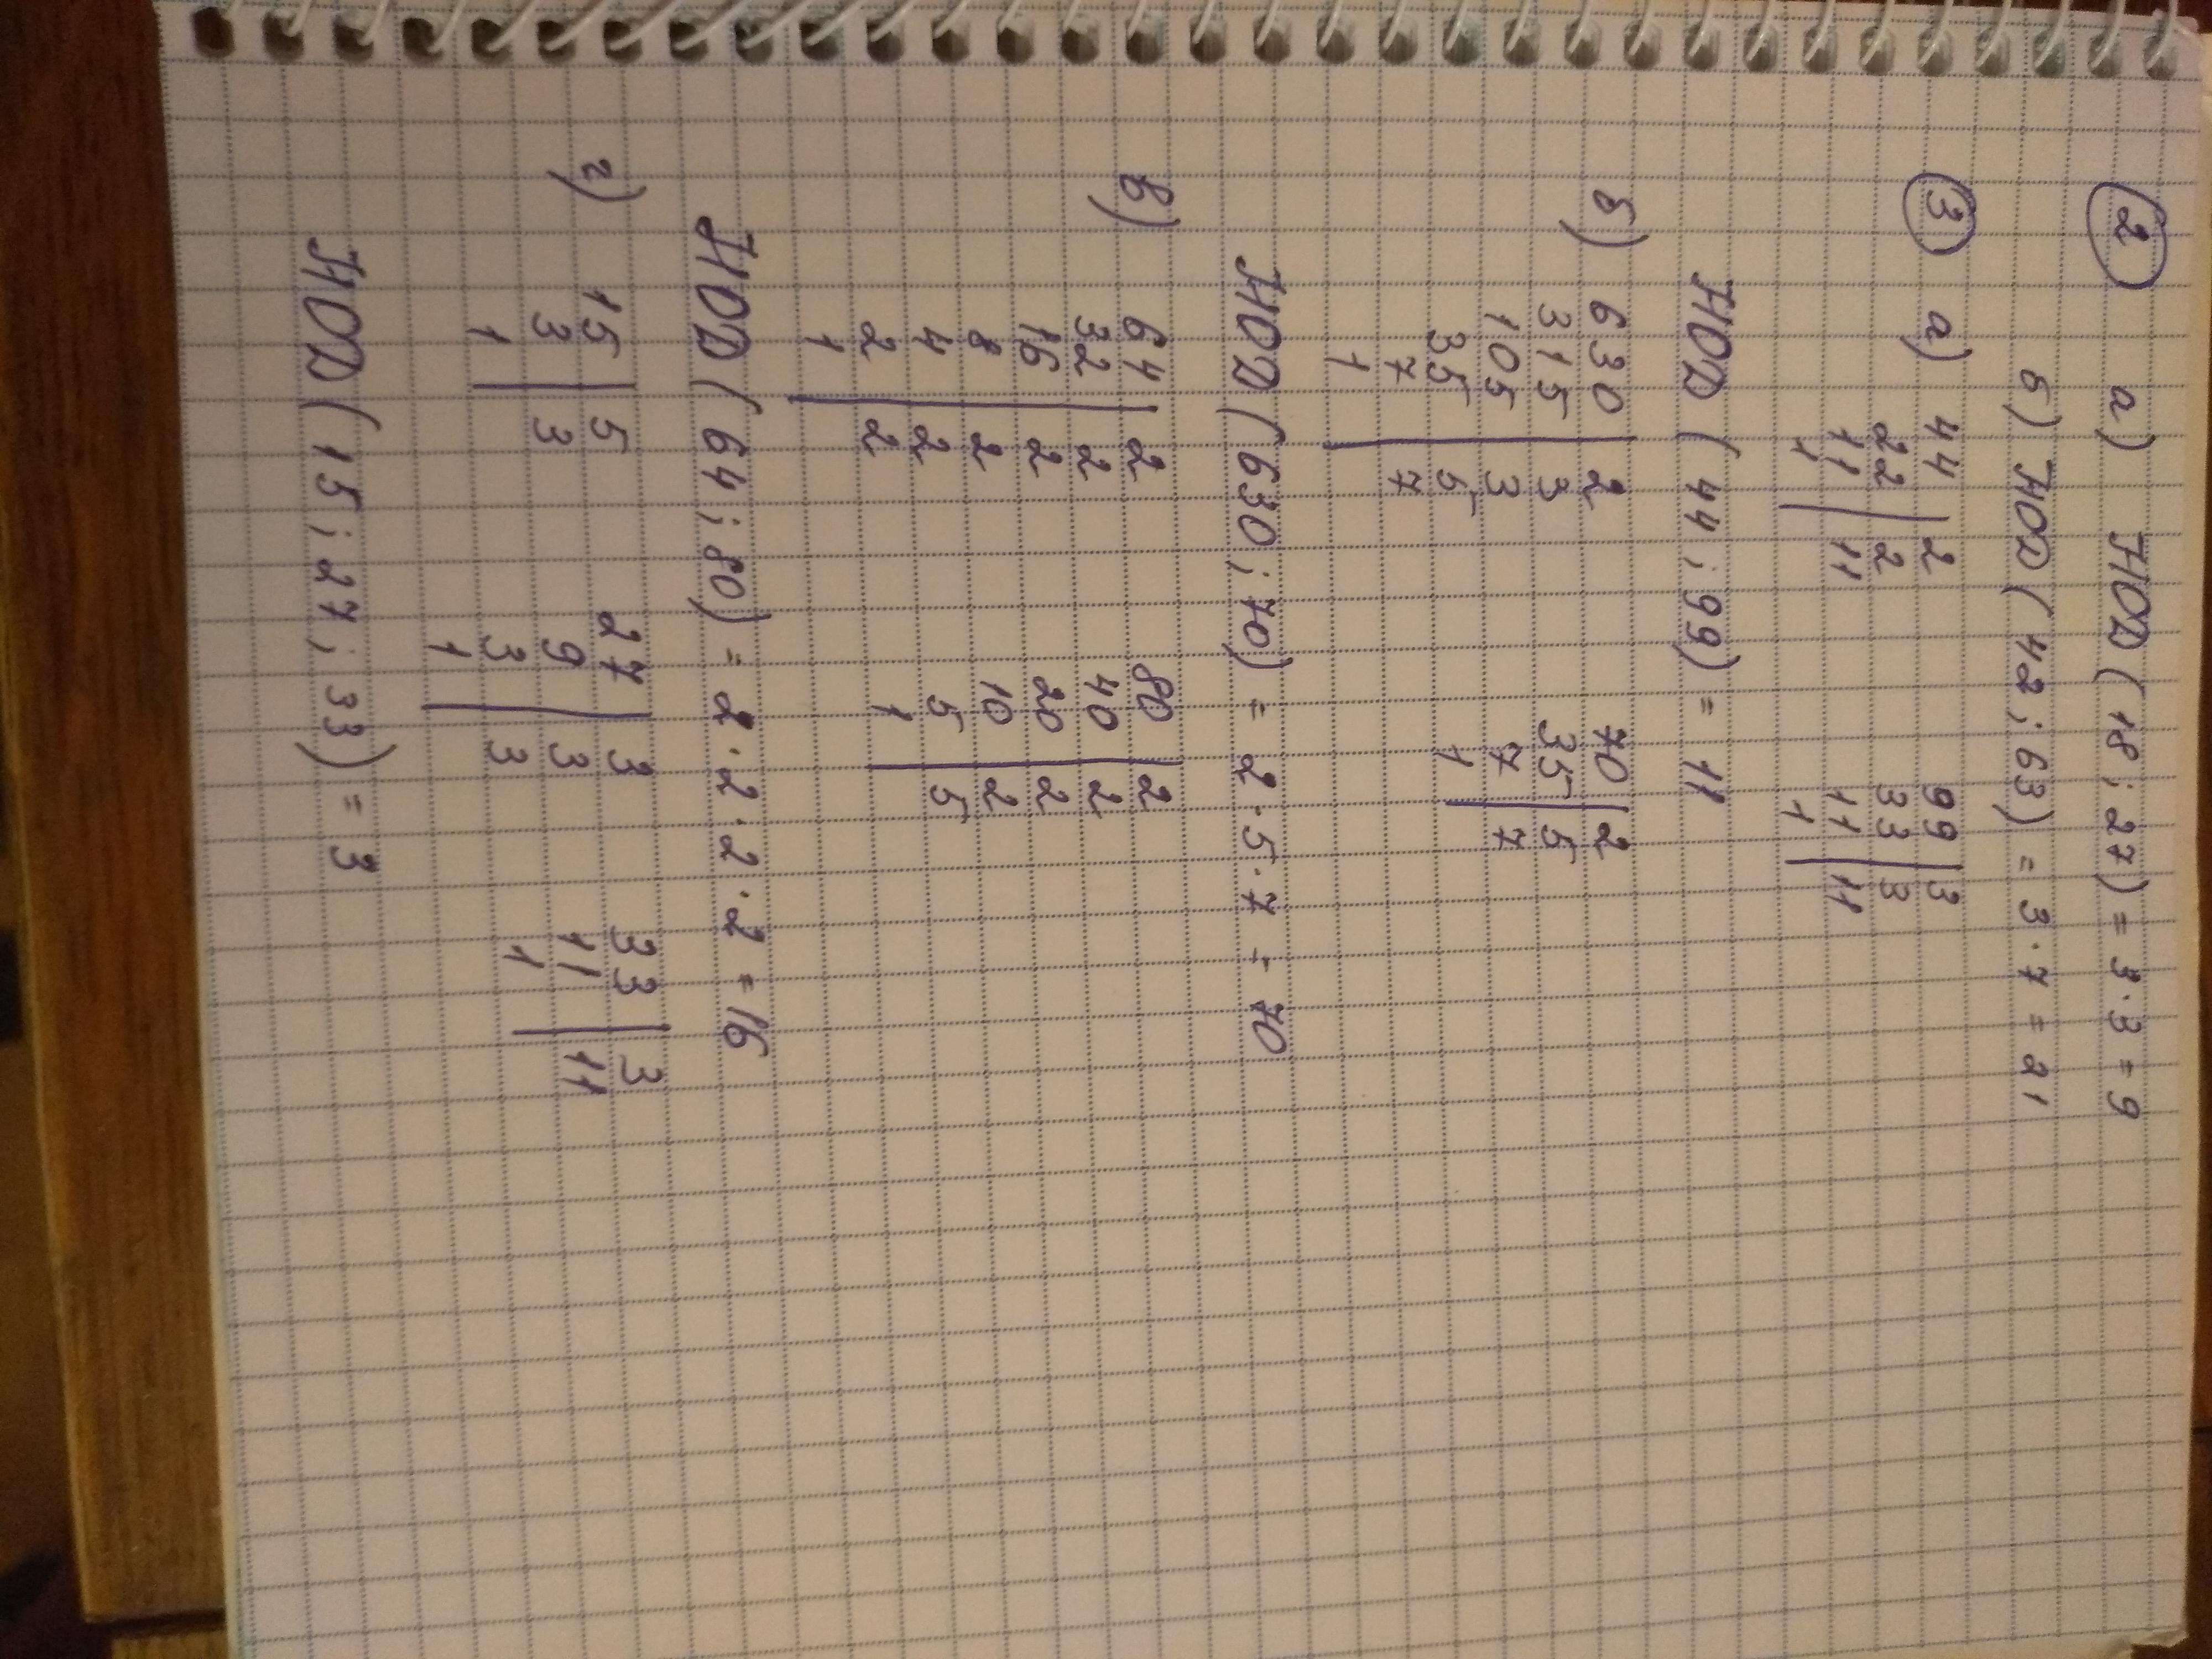 2 а) НОД (18; 27) = 3·3 = 9
б) НОД (42; 63) = 3·7 = 21
3 а) 44 | 2 99 | 3
22 | 2 33 | 3
11 | 11 11 | 11
1 1
НОД (44; 99) = 11
б) 630 | 2 70 | 2
315 | 3 35 | 5
105 | 3 7 | 7
35 | 5 1
7 | 7
1
НОД (630; 70) = 2·5·7 = 70
в) 64 | 2 80 | 2
32 | 2 40 | 2
16 | 2 20 | 2
8 | 2 10 | 2
4 | 2 5 | 5
2 | 2 1
1
НОД (64; 80) = 2·2·2·2 = 16
г) 15 | 5 27 | 3 33 | 3
3 | 3 9 | 3 11 | 11
1 3 | 3 1
1
НОД (15; 27; 33) = 3